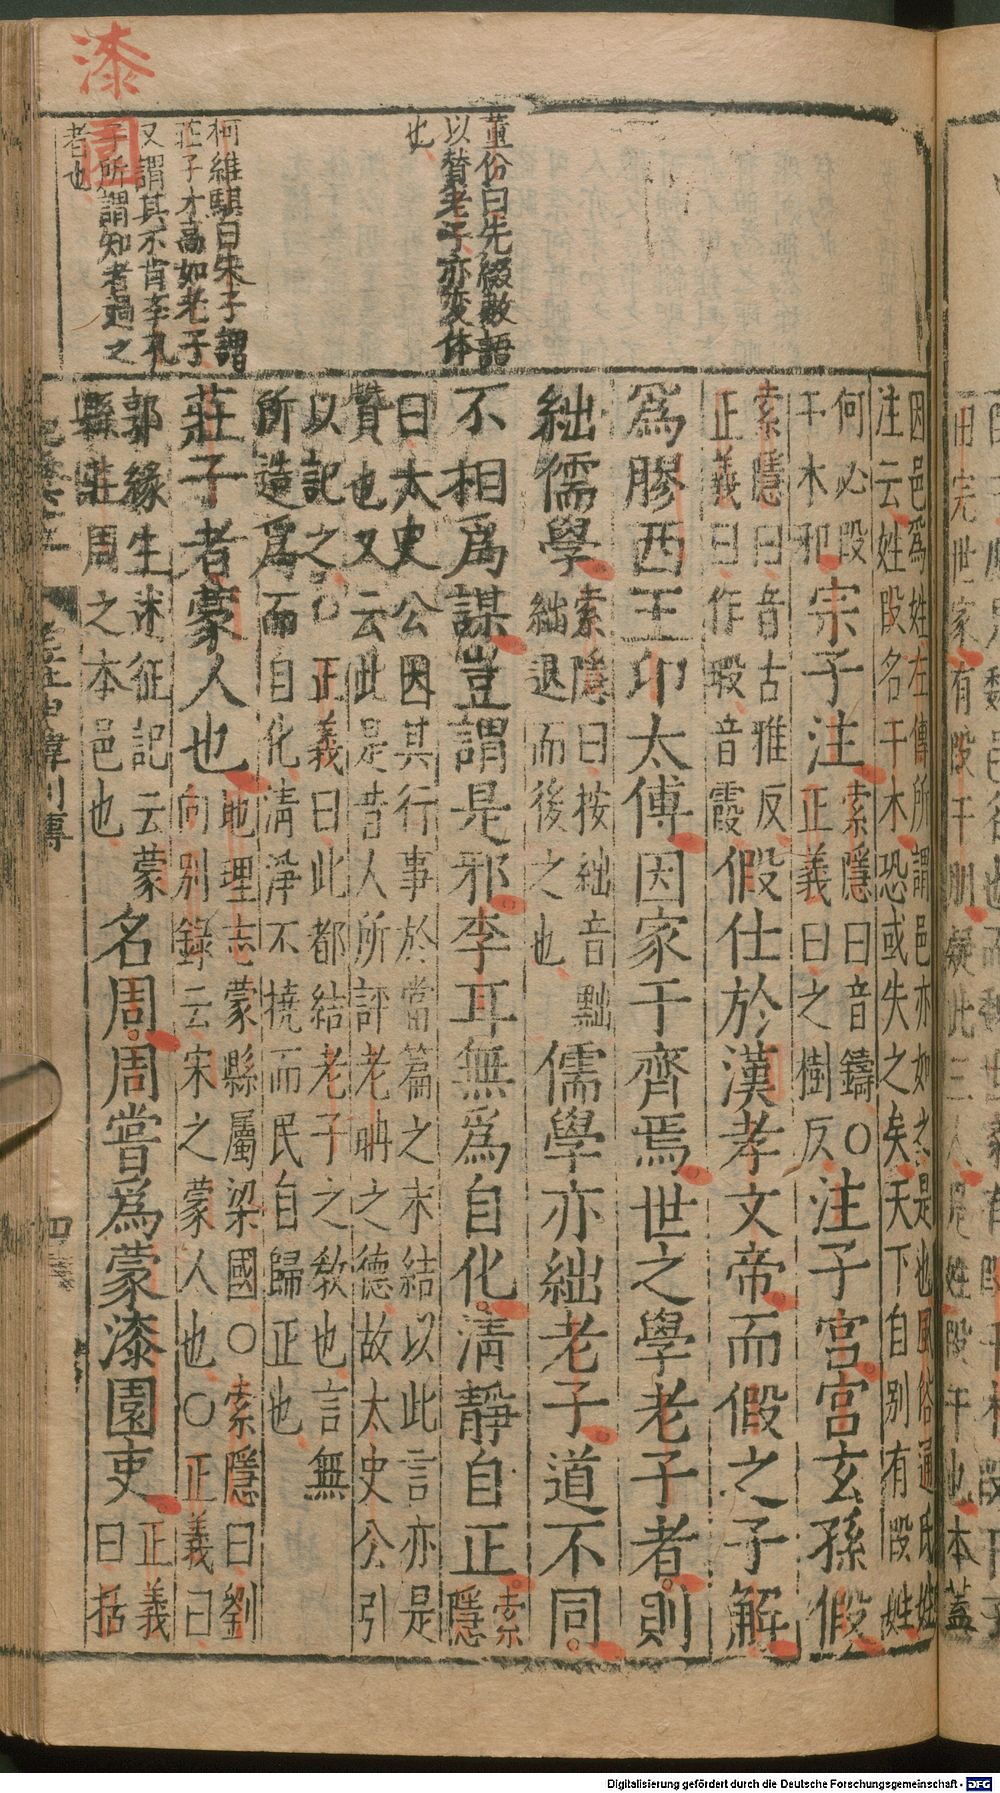 漆
園
董份曰先綴數語
以贊老子亦変体
也
柯維騏曰朱子謂
莊子才高如老子
又謂其不肯李孔
子所謂知者過之
者也
因邑爲姓左傳所謂邑亦如之是也風俗通氏姓
注云姓段名干木恐或失之矣天下自别有段姓
何必段
干木邪
宗子注
索隱曰音鑄〇
正義曰之樹反
注子宮宮玄孫假
索隱曰音古雅反
正義曰作瑕音霞
假仕於漢孝文帝而假之子解
爲膠西王卬太傅因家于齊焉世之學老子者則
絀儒學
索隱曰按絀音黜
絀退而後之也
儒學亦絀老子道不同
不相爲謀豈謂是邪李耳無爲自化清靜自正
索
隱
曰太史公因其行事於當篇之末結以此言亦是
贊也又云此是昔人所評老聃之德故太史公引
以記之〇正義曰此都結老子之敎也言無
所造爲而自化清淨不撓而民自歸正也
莊子者蒙人也
地理志蒙縣屬梁國〇索隱曰劉
向别錄云宋之蒙人也〇正義曰
郭緣生述征記云蒙
縣莊周之本邑也
名周周嘗爲蒙漆園吏
正義
曰括
四
Digitalisierung gefördert durch die Deutsche Forschungsgemeinschaft - DFG